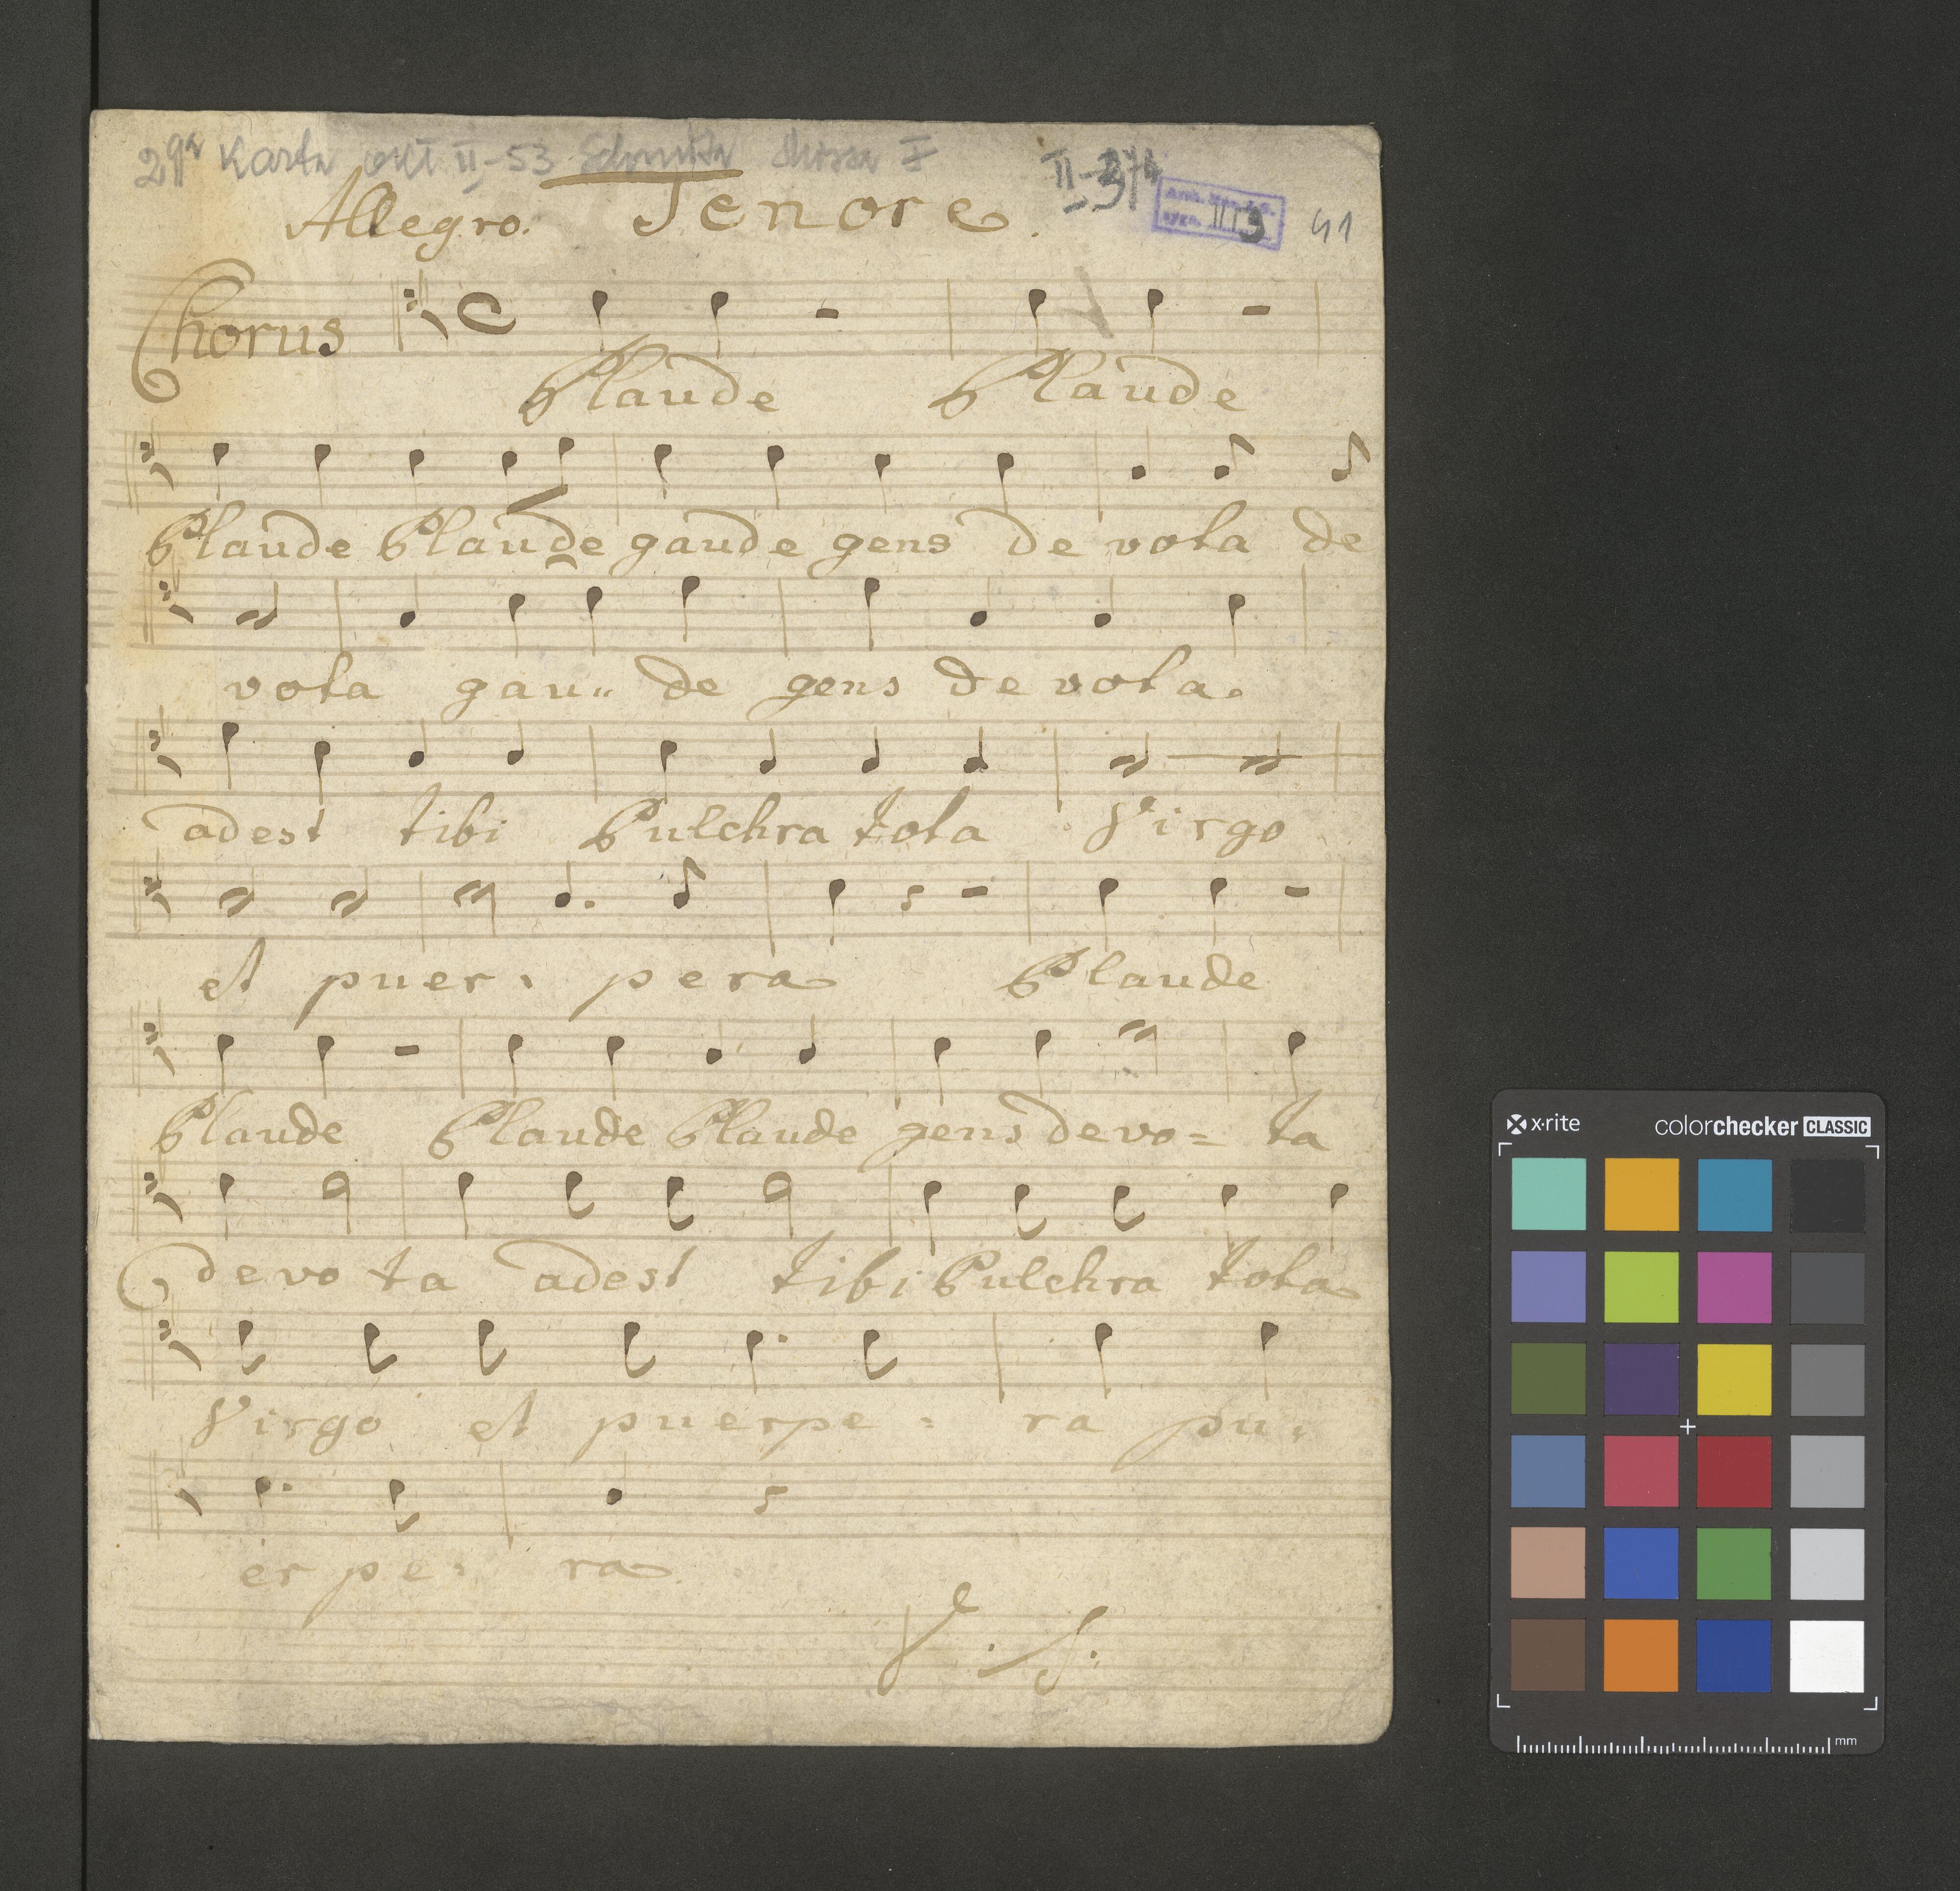 29a Karta okł II-53 Schmitta Missa I
II-374
Allegro. Tenore.
sygn. III 3 41
Chorus
Plaude Plaude
Plaude Plaude gaude gens de vota de
vota gau„ de gens de vota.
adest tibi Pulchra tota Virgo
et puer, pera Plaude
Plaude Plaude Plaude gens devo= ta
devo ta adest tibi Pulchra tota
Virgo et puerpe = ra pu,
er pe, ra
V. S.
x·rite colorchecker CLASSIC
mm